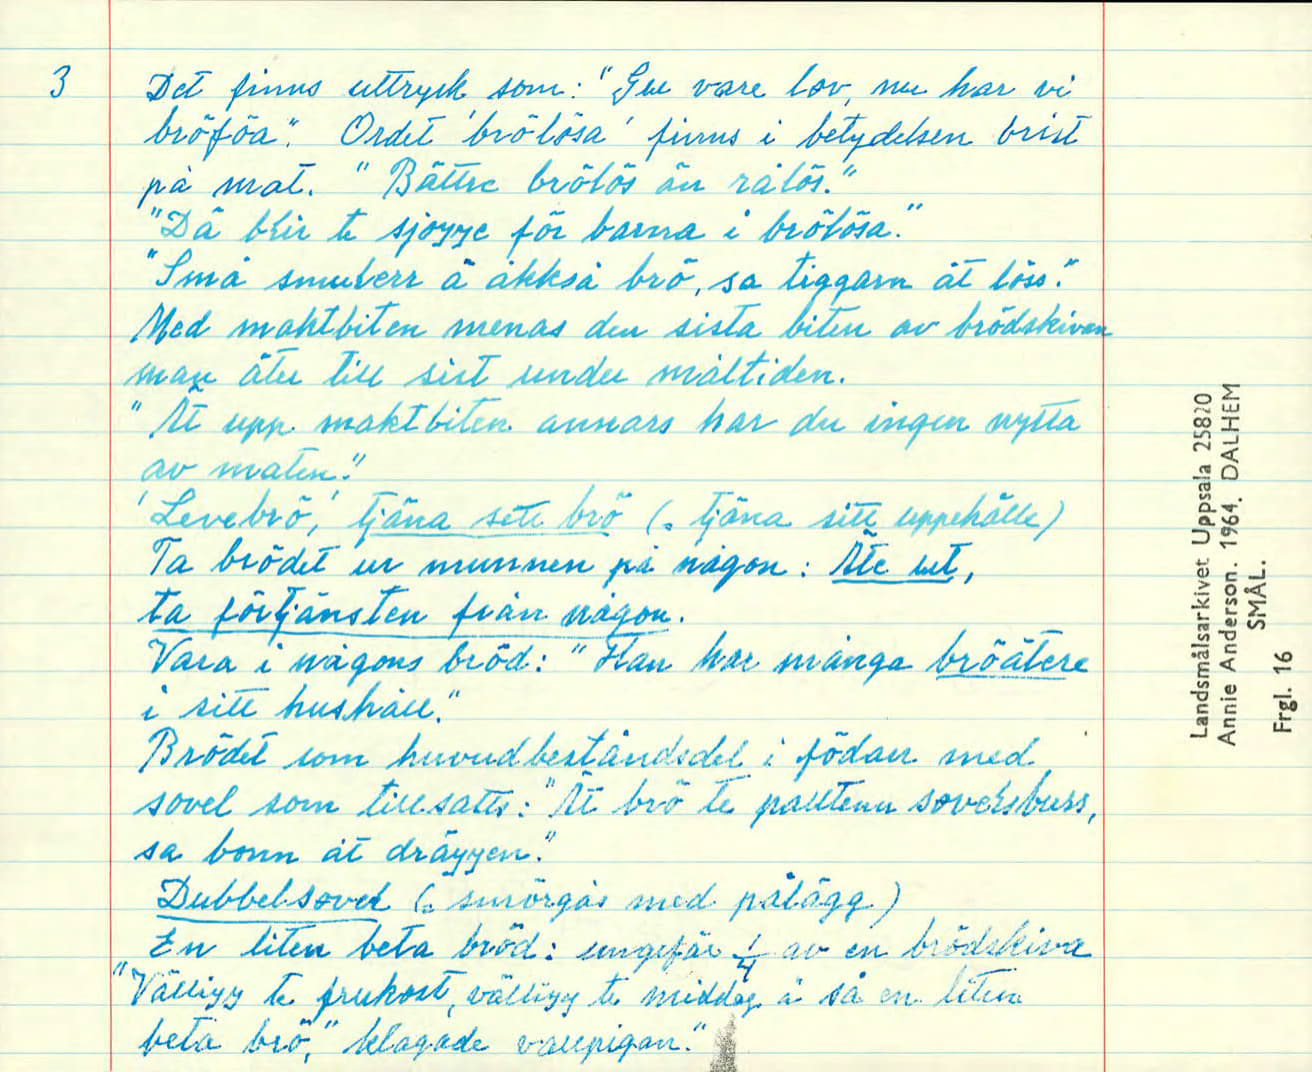 3
Det finns uttryck som: "Gu vare lov, nu har vi
bröföa". Ordet 'brölösa' finns i betydelsen brist
på mat. "Bättre brölös än rålös."
"Dä blir te sjoyye för barna i brölösa."
"Små smulerr ä åkkså brö, sa tiggarn åt löss".
Med maktbiten menas den sista biten av brödskivan
man äter till sist under måltiden.
"Ät upp maktbiten annars har du ingen nytta
av maten".
'Levebrö,' tjäna sett brö (= tjäna sitt uppehälle)
Ta brödet ur munnen på någon: Äte ut,
ta förtjänsten från någon.
Vara i någons bröd: "Han har många bröätere
i sitt hushåll."
Brödet som huvudbeståndsdel i födan med
sovel som tillsatts: "Ät brö te palltenn sovelsbuss,
sa bonn åt dräyyen".
Dubbelsovel (= smörgås med pålägg)
En liten beta bröd: ungefär 1/4 av en brödskiva
"Välliyy te frukost, välliyy te middag å så en liten
beta brö," klagade vallpigan."
Landsmålsarkivet Uppsala 25820
Annie Anderson. 1964. DALHEM
SMÅL.
Frgl. 16